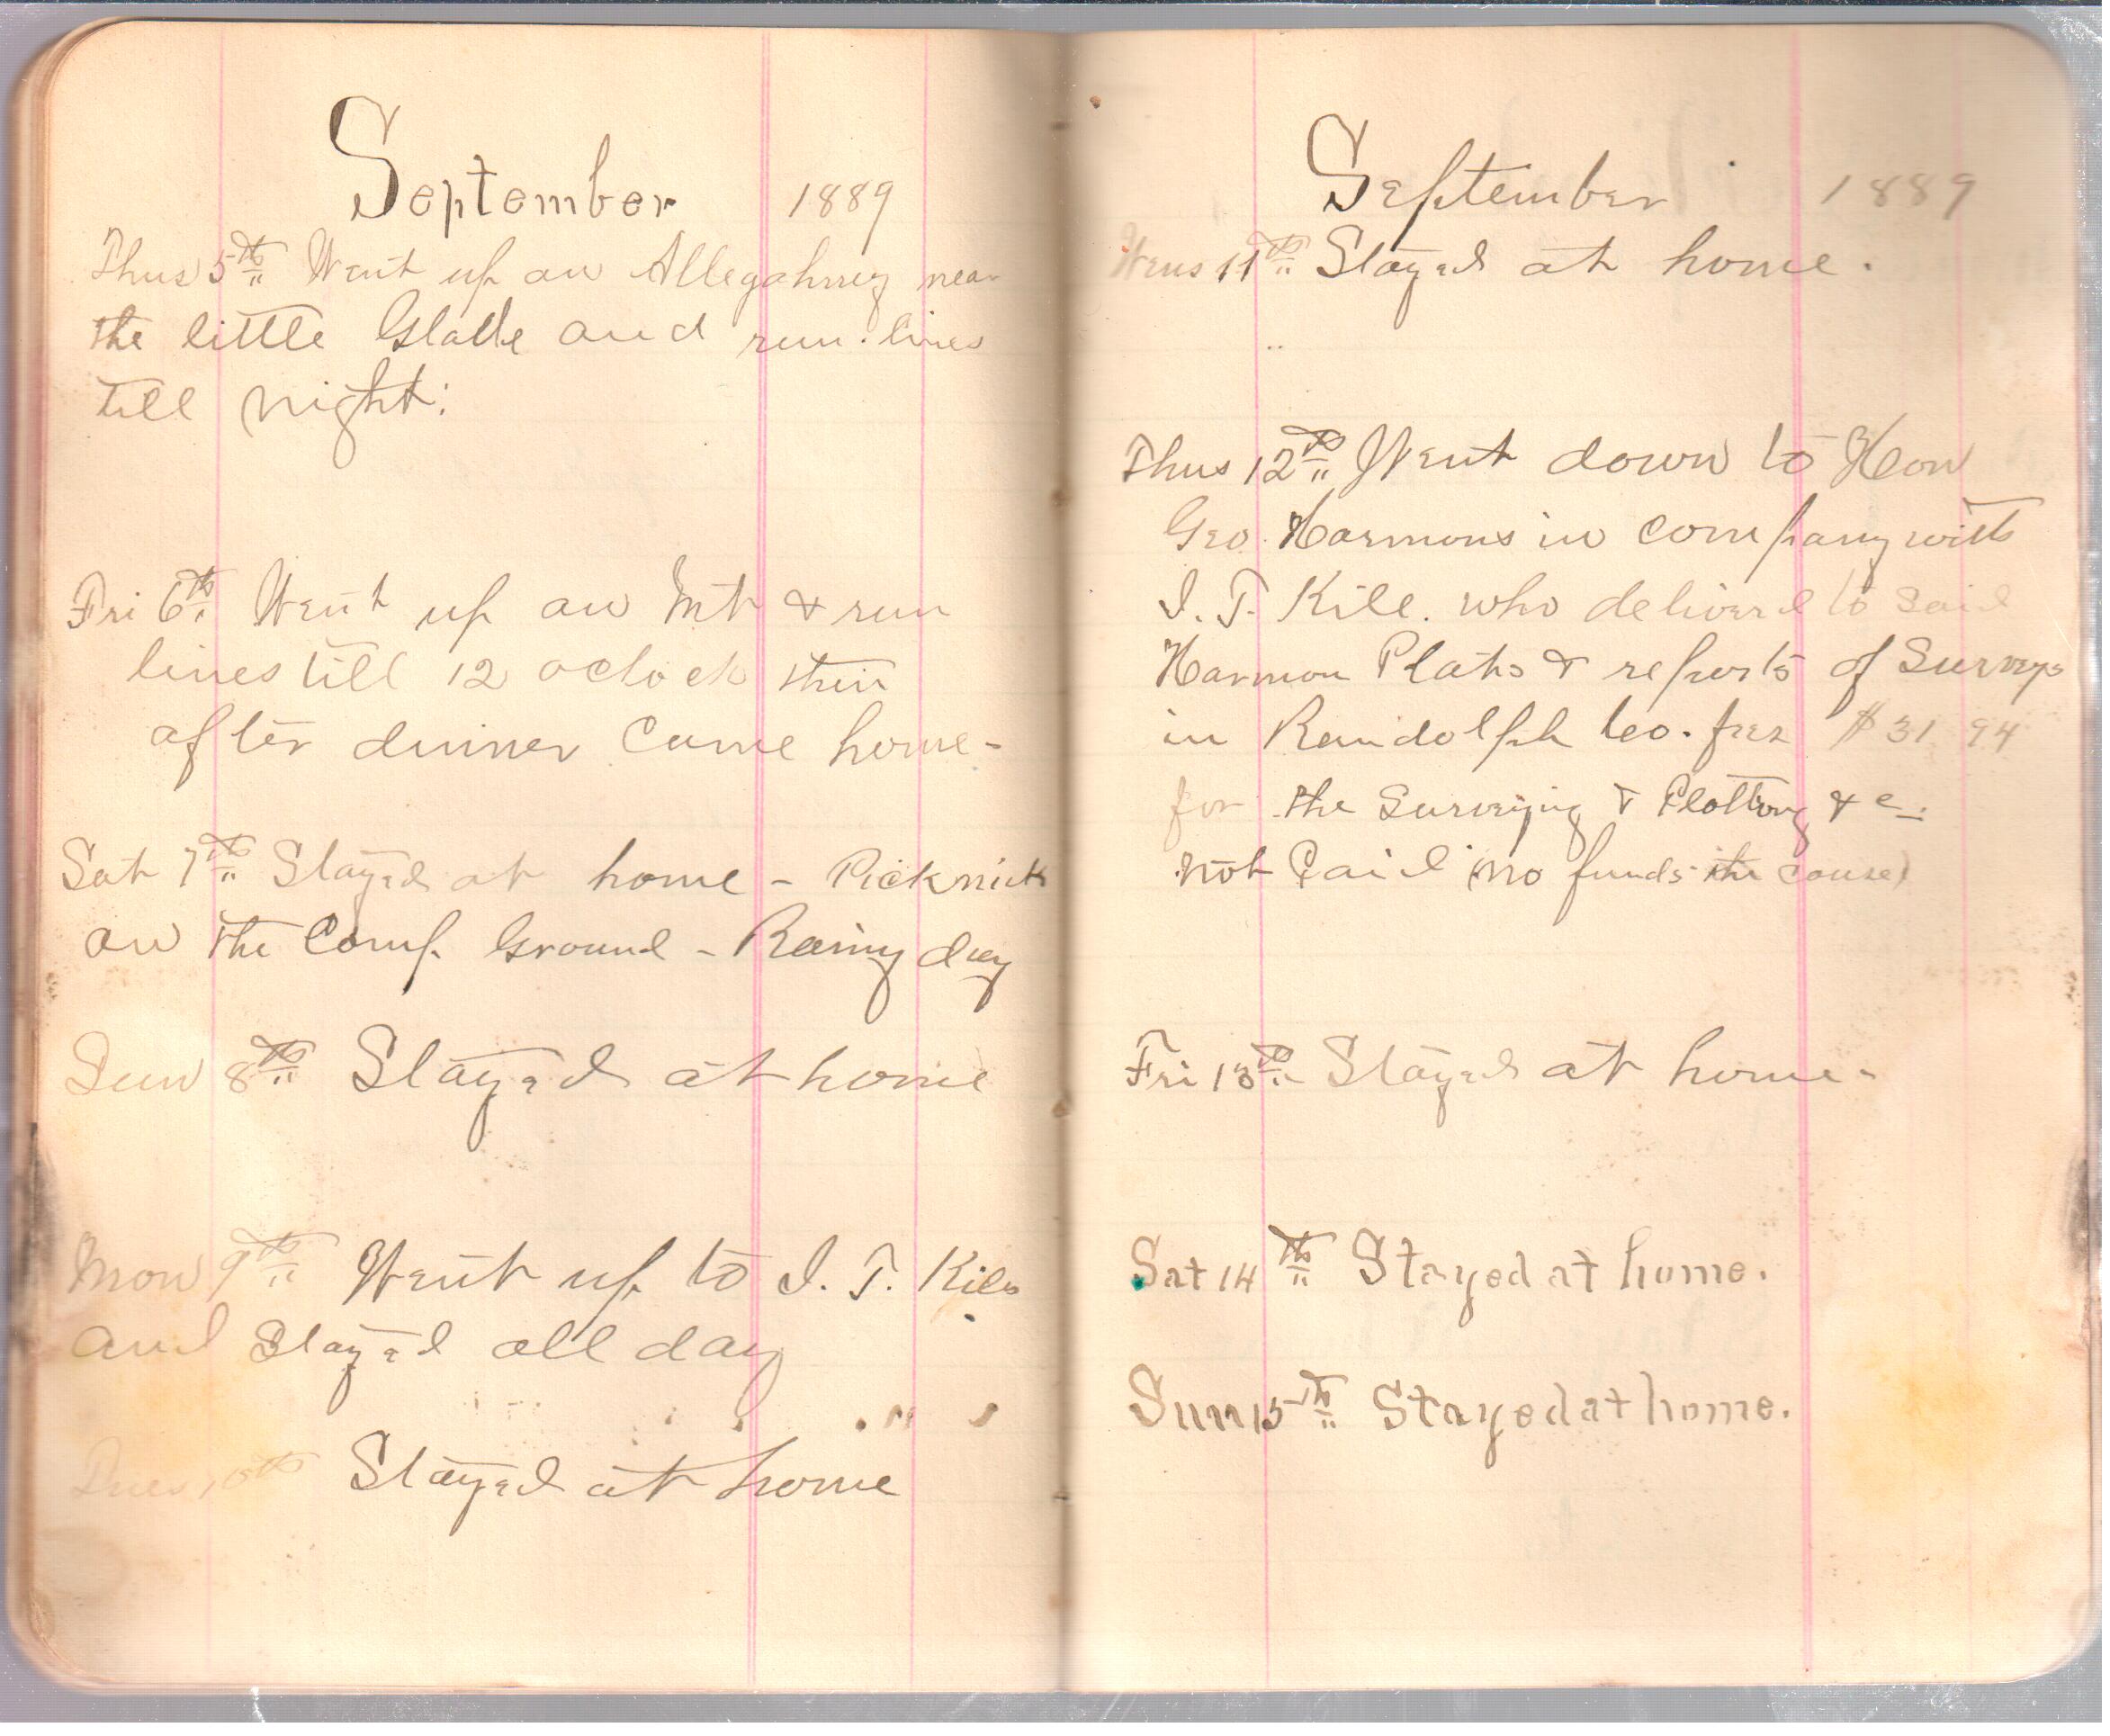 September 1889
Thus 5th Went up on Allegahney near
the little Glade and run lines
till night.
Fri 6th Went up on Mt & run
lines till 12 oclock then
after dinner Came home-
Sat 7th Stayed at home - Picknick
on the Camp Ground - Rainy day
Sun 8th Stayed at home
Mon 9th Went up to I. T. Kiles
and Stayed all day
Tues 10th Stayed at home
September 1889
Wens 11th Stayed at home.
Thus 12th Went down to Hon
Geo. Harmons in company with
I. T. Kile. who deliverd to said
Harmon Plats & reports of Surveys
in Randolph Co. fees $31 94
for the Surveying & Plotting &c.
not Paid (no funds the cause)
Fri 13th Stayed at home-
Sat 14th Stayed at home.
Sun 15th Stayed at home.